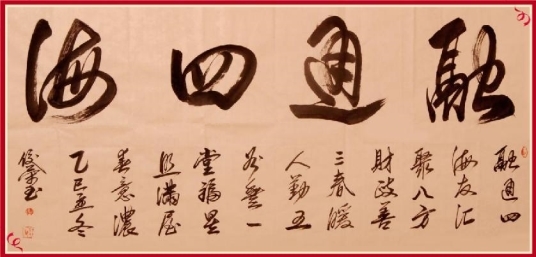 融通四海
融通四
海友汇
聚八方
財政善
三春暖
人勤五
谷豐一
堂福星
照满屋
春意濃
乙巳孟冬